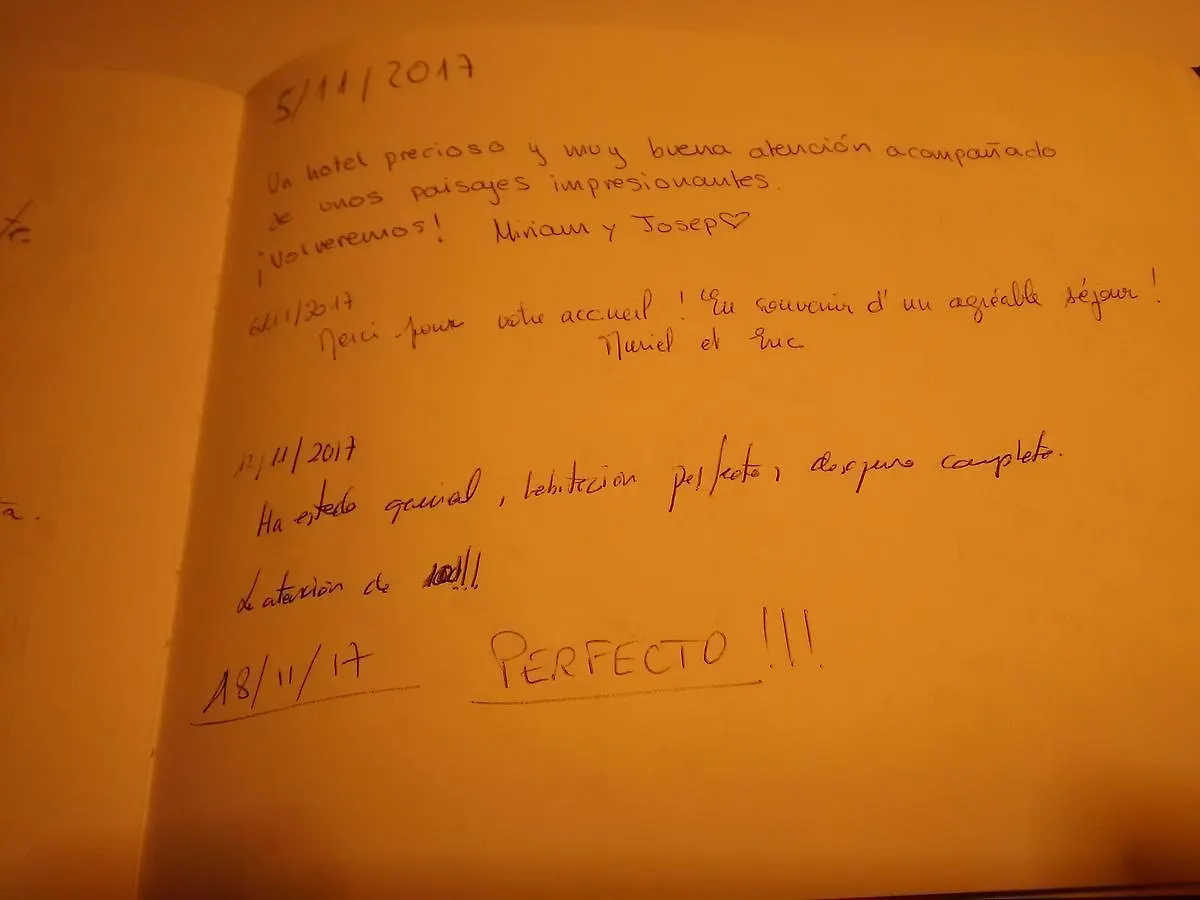 5/11/2017
Un hotel precioso y muy buena atención acompañado
de unos paisajes impresionantes.
¡Volveremos! Miriam y Josep♡
6/11/2017
Merci pour votre accueil ! En souvenir d'un agréable séjour !
Muriel et Eric
11/2017
Ha estado genial, habitación perfecta, desayuno completo.
La atención de 100!!!
18/11/17 PERFECTO !!!